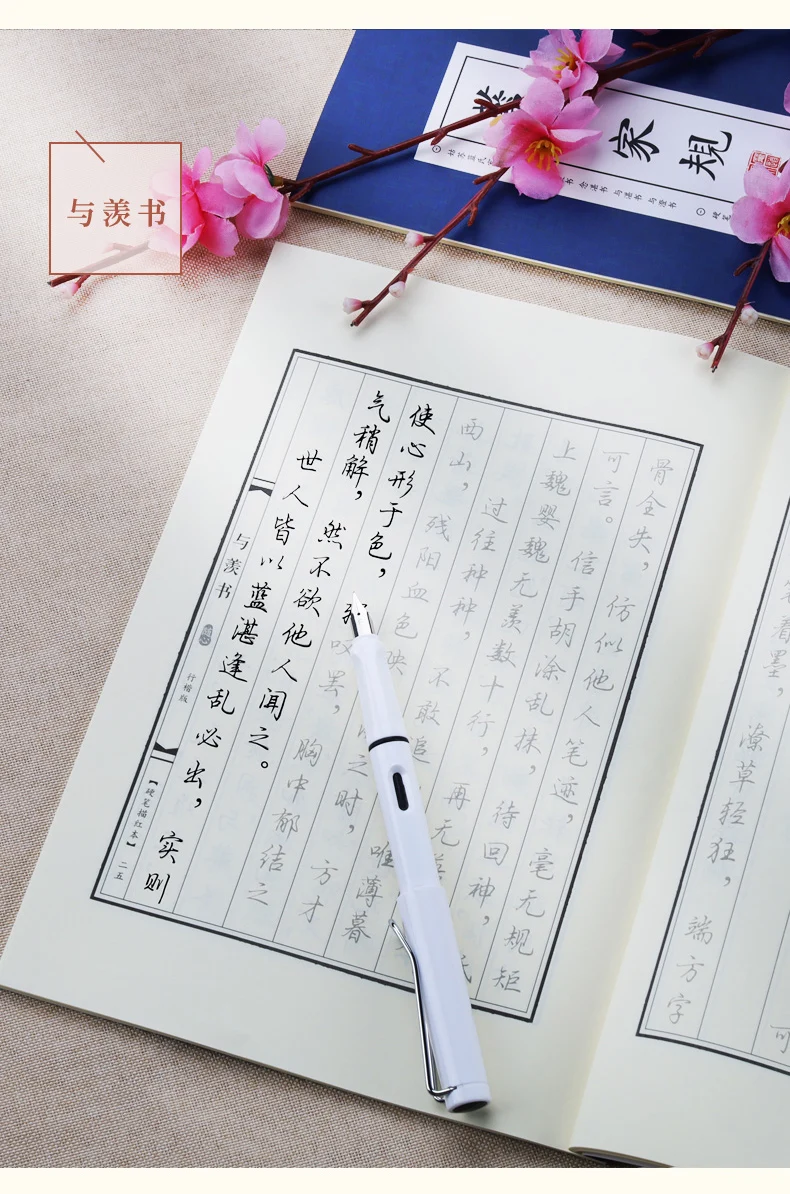 与羡书
家规
骨全失，仿似他人笔迹，毫无规矩
可言。信手胡涂乱抹，待回神，
上魏婴魏无羡数十行，再无
过往种种，不敢追 唯薄暮
西山，残阳血色映 之时，方才
使心形于色，叹罢，胸中郁结之
气稍解，然不欲他人闻之。
世人皆以蓝湛逢乱必出，实则
与羡书
行楷版
【硬笔描红本】
二五
着墨，潦草轻狂，端方字